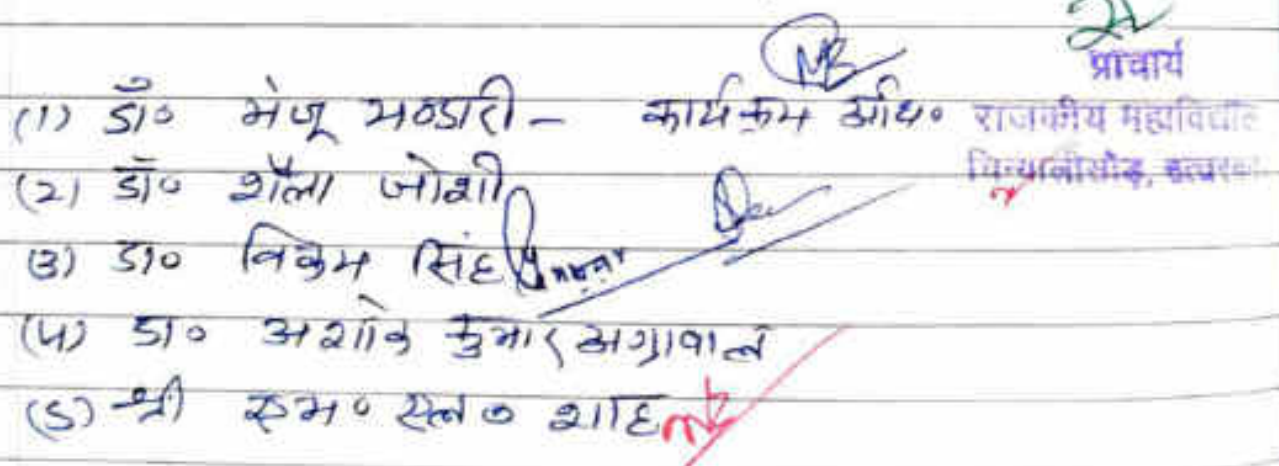 प्राचार्य
राजकीय महाविद्याल
चिन्यालीसौड़,
(1) डॉ० मंजू भण्डारी - कार्यक्रम अधि०
(2) डॉ० शैला जोशी
(3) डा० विक्रम सिंह
(4) डा० अशोक कुमार अग्रावाल
(5) श्री एम० एल० शाह